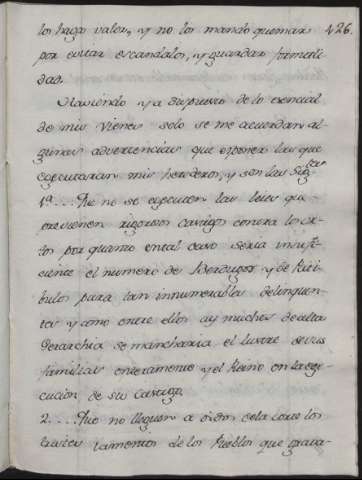 los hago valer, y no los mando quemar 426.
por evitar escandalos, y guardar formali
dad.
Haviendo ya dispuesto de lo esencial
de mis vienes solo se me acuerdan al-
gunas advertencias que exponer las que
egecutaran mis herederos, y son las Sigtes
1ª.... Que no se egecuten las leies que
previenen rigorosos castigos contra los
tos por quanto en tal caso seria insufi-
ciente el numero de Verdugos y de Pati
bulos para tan innumerables delinquen
tes y como entre ellos ay muchos de alta
Gerarchia se mancharia el lustre de sus
familias enteramente y el Reino en la ege
cucion de su Castigo.
2.... Que no lleguen a oidos de la corte los
tristes lamentos de los Pueblos que grava-